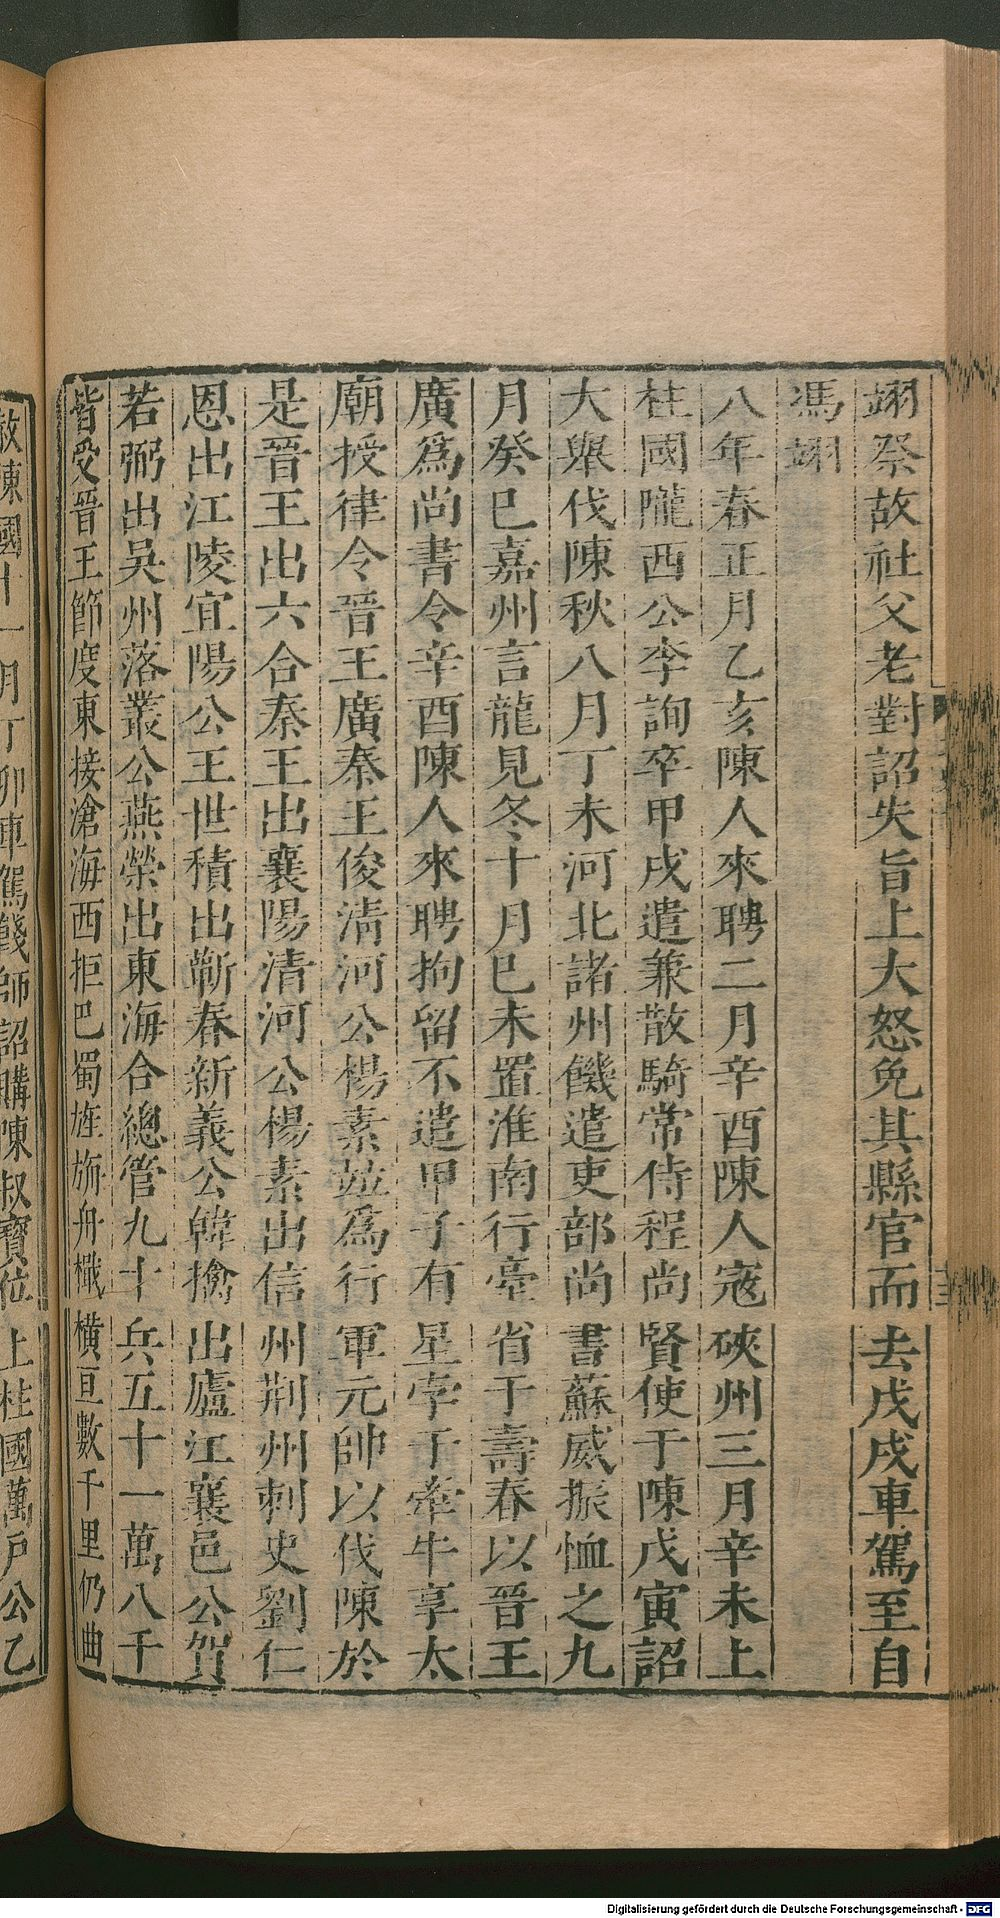 翊祭故社父老對詔失旨上大怒免其縣官而去戊戌車駕至自
馮翊
八年春正月乙亥陳人來聘二月辛酉陳人寇硤州三月辛未上
柱國隴西公李詢卒甲戌遣兼散騎常侍程尚賢使于陳戊寅詔
大舉伐陳秋八月丁未河北諸州饑遣吏部尚書蘇威振恤之九
月癸巳嘉州言龍見冬十月巳未置淮南行臺省于壽春以晉王
廣爲尚書令辛酉陳人來聘拘留不遣甲子有星孛于牽牛享太
廟授律令晉王廣秦王俊清河公楊素並爲行軍元帥以伐陳於
是晉王出六合秦王出襄陽清河公楊素出信州荆州刺史劉仁
恩出江陵宜陽公王世積出蘄春新義公韓擒出廬江襄邑公賀
若弼出吳州落叢公燕榮出東海合總管九十兵五十一萬八千
皆受晉王節度東接滄海西拒巴蜀旌旃舟檝橫亘數千里仍曲
赦陳國十一月丁卯車駕餞師詔購陳叔寶位上柱國萬戶公乙
Digitalisierung gefördert durch die Deutsche Forschungsgemeinschaft - DFG